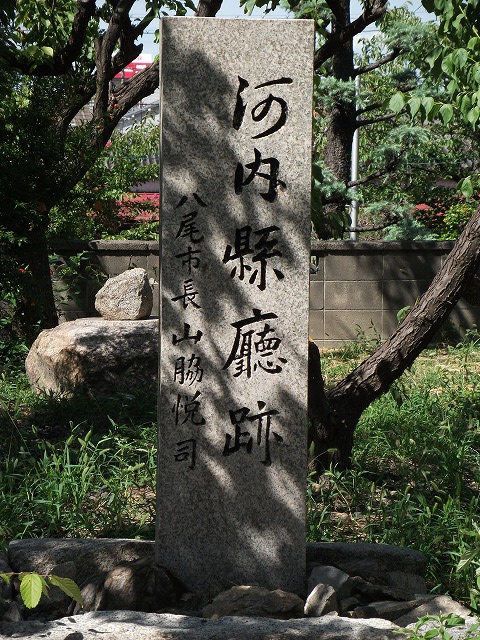 河内縣廳跡
八尾市長 山脇悦司